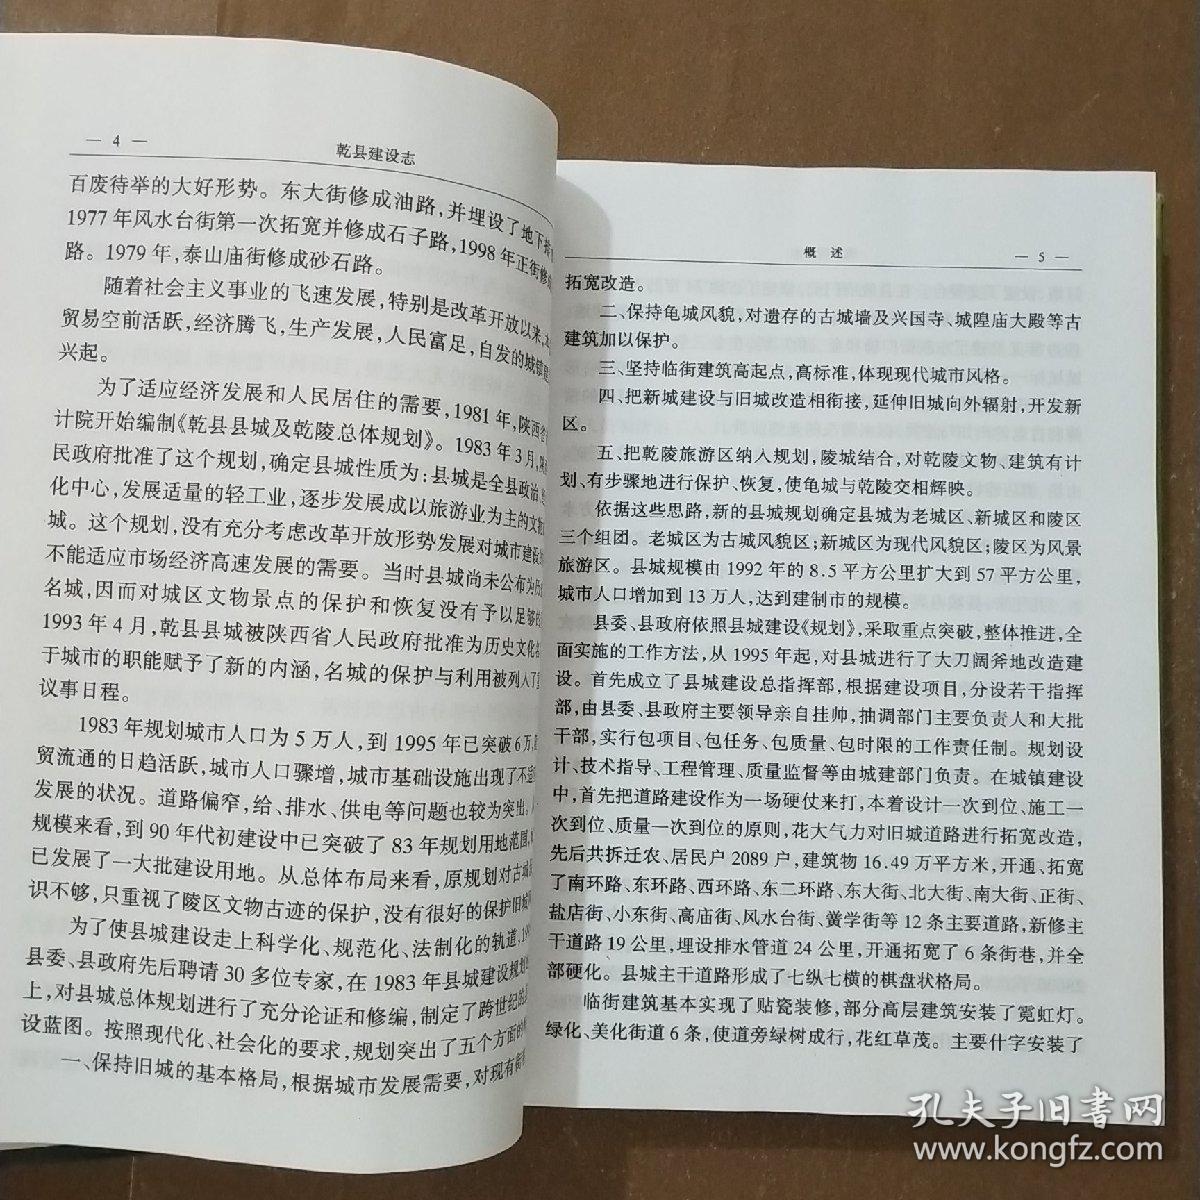 — 4 —
乾县建设志
百废待举的大好形势。东大街修成油路,并埋设了地下
1977年风水台街第一次拓宽并修成石子路,1998年正街修
路。1979年,泰山庙街修成砂石路。
随着社会主义事业的飞速发展,特别是改革开放以来,
贸易空前活跃,经济腾飞,生产发展,人民富足,自发的城镇
兴起。
为了适应经济发展和人民居住的需要,1981年,陕西省
计院开始编制《乾县县城及乾陵总体规划》。1983年3月,
民政府批准了这个规划,确定县城性质为:县城是全县政治、
化中心,发展适量的轻工业,逐步发展成以旅游业为主的文
城。这个规划,没有充分考虑改革开放形势发展对城市建设
不能适应市场经济高速发展的需要。当时县城尚未公布为
名城,因而对城区文物景点的保护和恢复没有予以足够
1993年4月,乾县县城被陕西省人民政府批准为历史文化
于城市的职能赋予了新的内涵,名城的保护与利用被列入了
议事日程。
1983年规划城市人口为5万人,到1995年已突破6万,
贸流通的日趋活跃,城市人口骤增,城市基础设施出现了不
发展的状况。道路偏窄,给、排水、供电等问题也较为突出。
规模来看,到90年代初建设中已突破了83年规划用地范围,
已发展了一大批建设用地。从总体布局来看,原规划对古城
识不够,只重视了陵区文物古迹的保护,没有很好的保护旧城
为了使县城建设走上科学化、规范化、法制化的轨道,
县委、县政府先后聘请30多位专家,在1983年县城建设规划
上,对县城总体规划进行了充分论证和修编,制定了跨世纪的
设蓝图。按照现代化、社会化的要求,规划突出了五个方面的
一、保持旧城的基本格局,根据城市发展需要,对现有街
概 述
— 5 —
拓宽改造。
二、保持龟城风貌,对遗存的古城墙及兴国寺、城隍庙大殿等古
建筑加以保护。
三、坚持临街建筑高起点,高标准,体现现代城市风格。
四、把新城建设与旧城改造相衔接,延伸旧城向外辐射,开发新
区。
五、把乾陵旅游区纳入规划,陵城结合,对乾陵文物、建筑有计
划、有步骤地进行保护、恢复,使龟城与乾陵交相辉映。
依据这些思路,新的县城规划确定县城为老城区、新城区和陵区
三个组团。老城区为古城风貌区;新城区为现代风貌区;陵区为风景
旅游区。县城规模由1992年的8.5平方公里扩大到57平方公里,
城市人口增加到13万人,达到建制市的规模。
县委、县政府依照县城建设《规划》,采取重点突破,整体推进,全
面实施的工作方法,从1995年起,对县城进行了大刀阔斧地改造建
设。首先成立了县城建设总指挥部,根据建设项目,分设若干指挥
部,由县委、县政府主要领导亲自挂帅,抽调部门主要负责人和大批
干部,实行包项目、包任务、包质量、包时限的工作责任制。规划设
计、技术指导、工程管理、质量监督等由城建部门负责。在城镇建设
中,首先把道路建设作为一场硬仗来打,本着设计一次到位、施工一
次到位、质量一次到位的原则,花大气力对旧城道路进行拓宽改造,
先后共拆迁农、居民户2089户,建筑物16.49万平方米,开通、拓宽
了南环路、东环路、西环路、东二环路、东大街、北大街、南大街、正街、
盐店街、小东街、高庙街、风水台街、黉学街等12条主要道路,新修主
干道路19公里,埋设排水管道24公里,开通拓宽了6条街巷,并全
部硬化。县城主干道路形成了七纵七横的棋盘状格局。
临街建筑基本实现了贴瓷装修,部分高层建筑安装了霓虹灯。
绿化、美化街道6条,使道旁绿树成行,花红草茂。主要什字安装了
孔夫子旧书网
www.kongfz.com